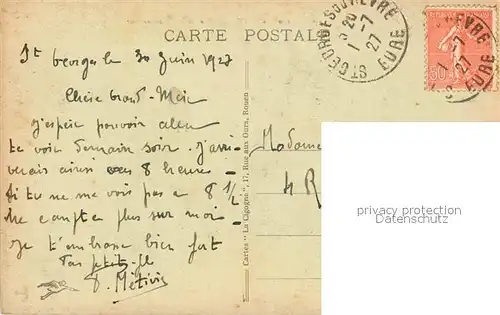 CARTE POSTALE
St Georges le 30 Juin 1927
Chère Grand-Mère
J'espère pouvoir aller
te voir demain soir. J'arri-
verais ainsi vers 8 heures
Si tu ne me vois pas à 8 1/2
ne compte plus sur moi
Je t'embrasse bien fort
Ton petit-fils
P. Métivier
Cartes "La Cigogne", 17, Rue aux Ours, Rouen
Madame
4 R
ST GEORGES DU VIEVRE
1-7
27
EURE
50
VIEVRE
1-7
27
EURE
privacy protection
Datenschutz